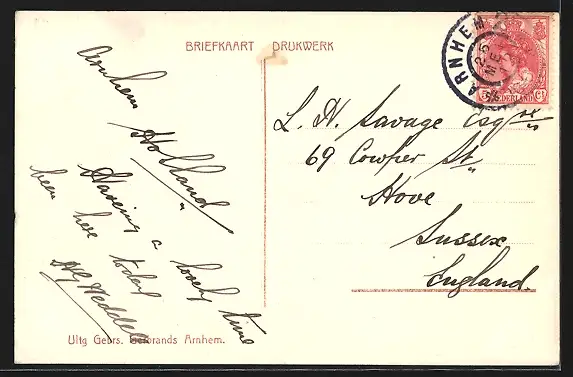 BRIEFKAART DRUKWERK
Arnhem
Holland
Having a lovely time
been here today
L. N. Savage Esqre
69 Cowper St
Hove
Sussex
England.
ARNHEM
25
ME
NEDERLAND
5 Ct
Uitg Gebrs. Gerbrands Arnhem.